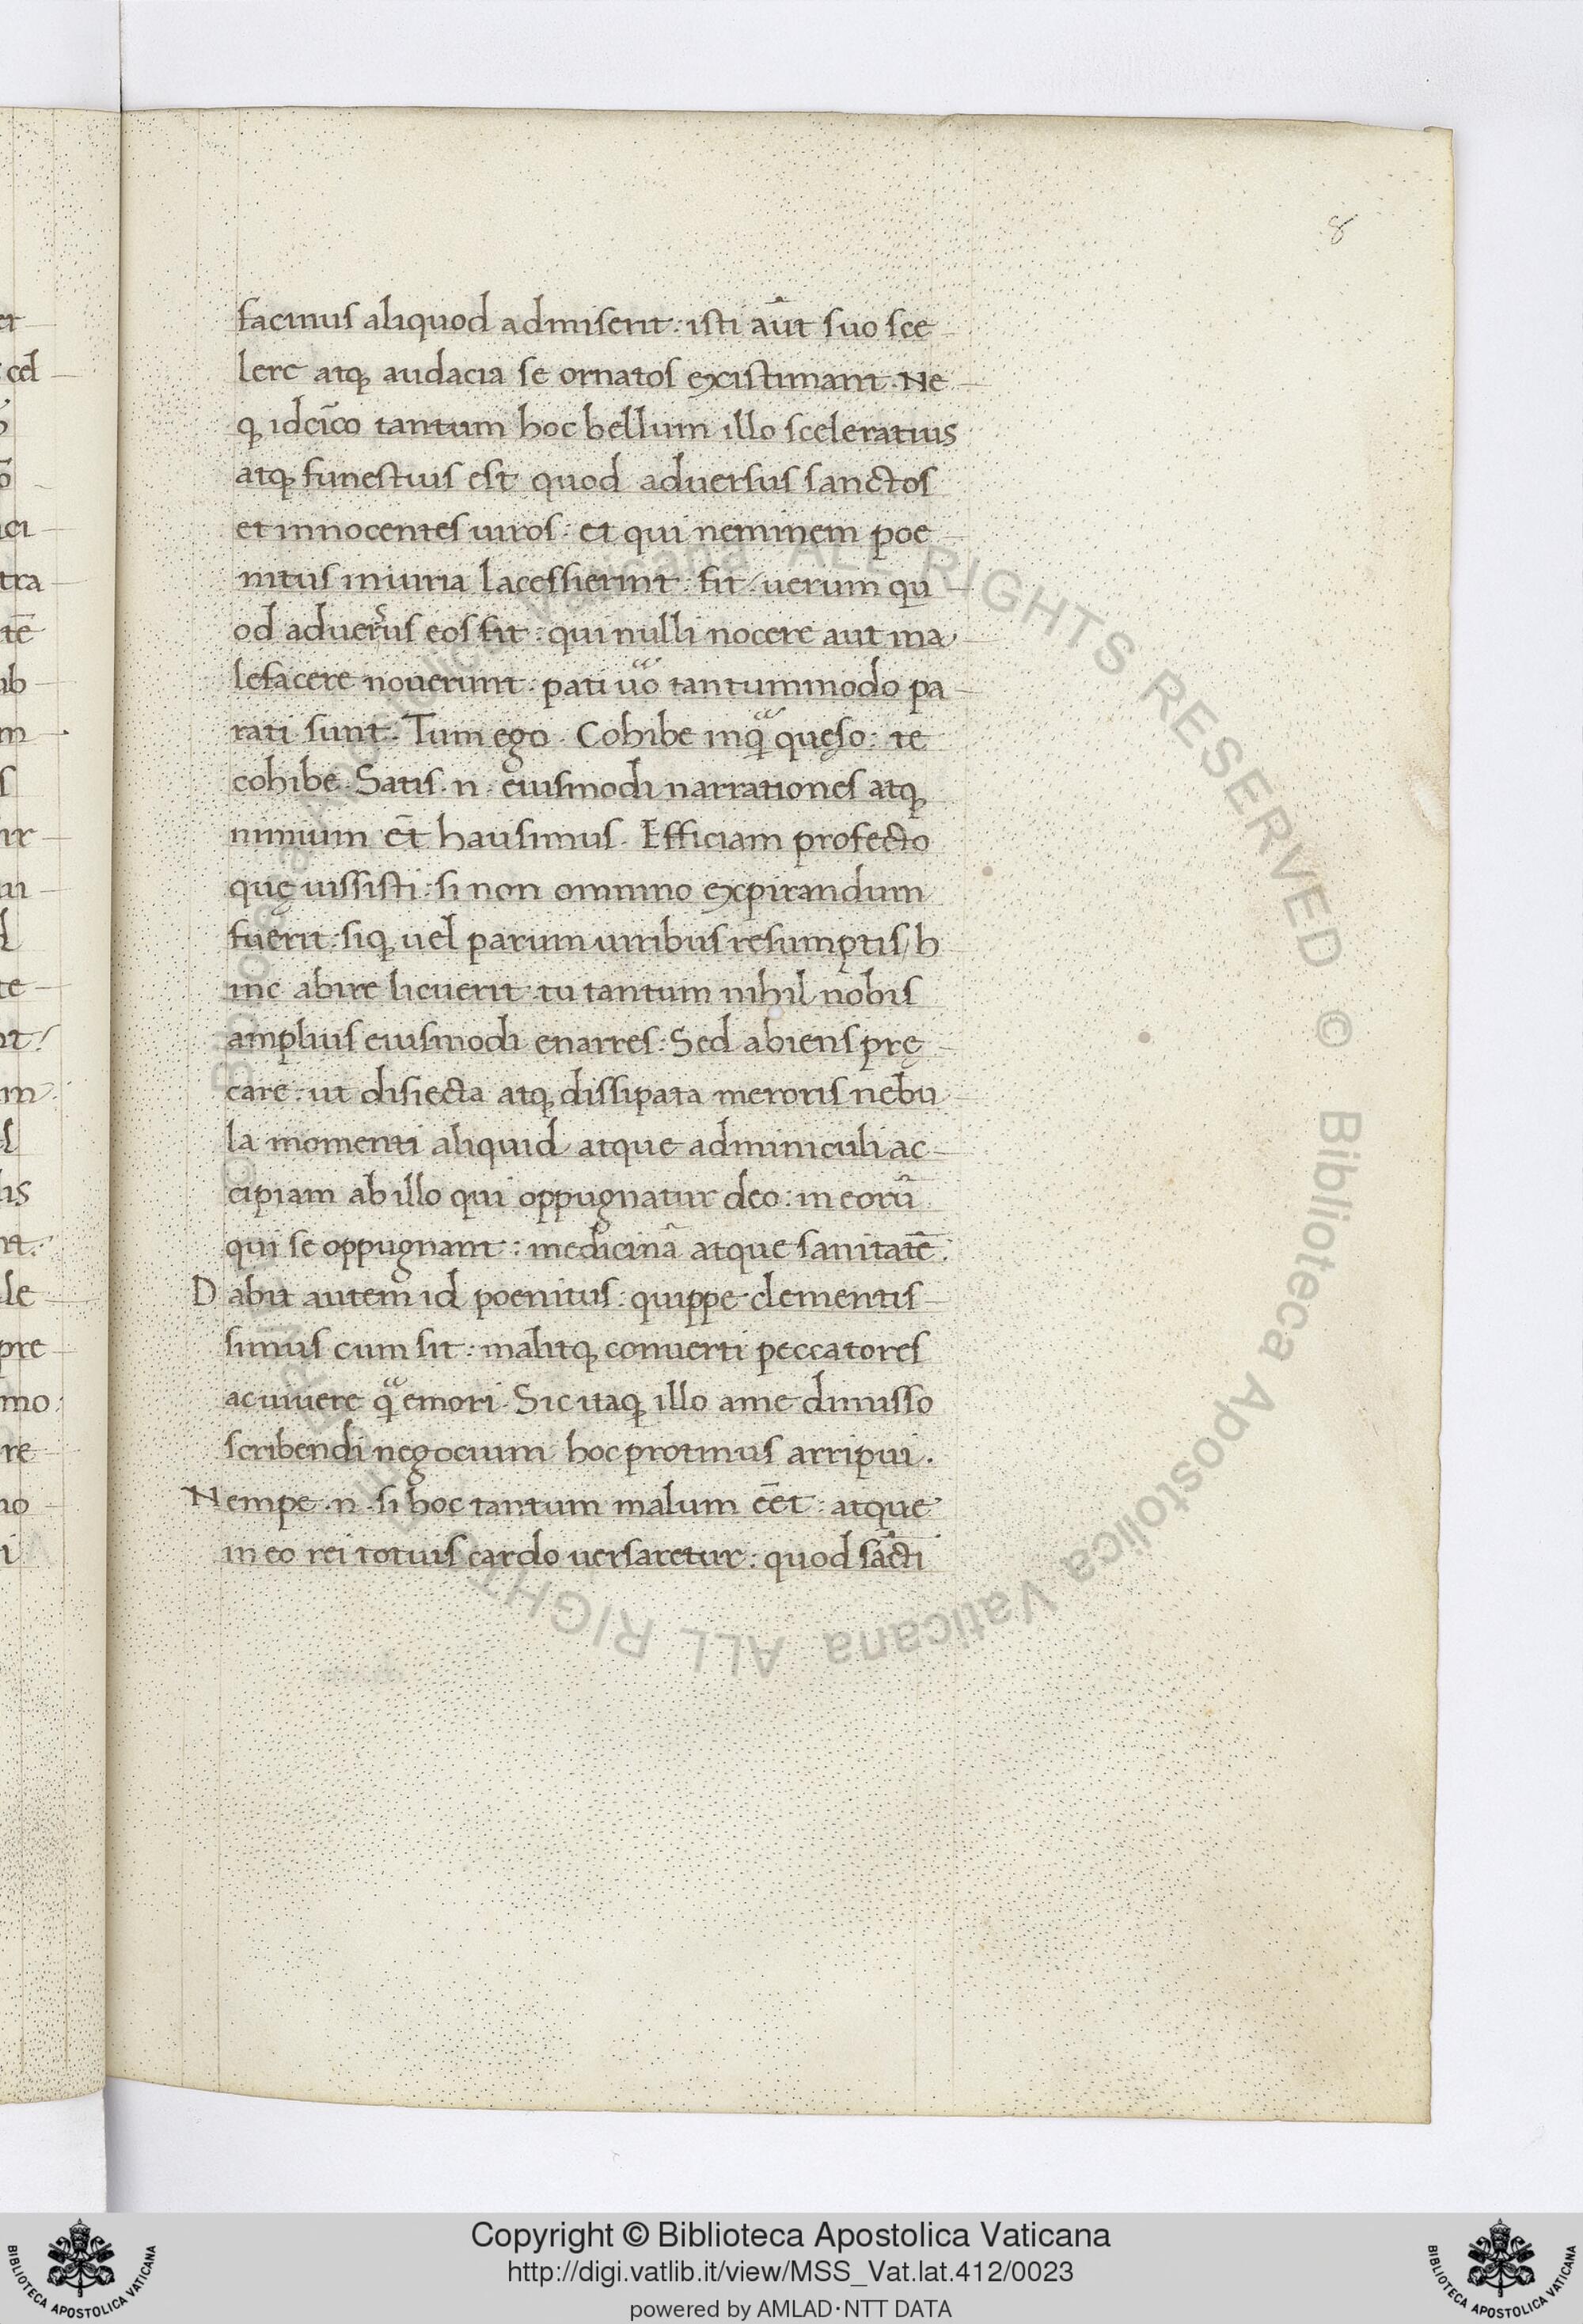 8
facinus aliquod admiserit : isti aūt suo sce
lere atq; audacia se ornatos existimant. Ne
q; idcīco tantum hoc bellum illo sceleratius
atq; funestius est quod adversus sanctos
et innocentes uiros : et qui neminem poe
nitus iniuria lacessierint : fit / uerum qu
od aduersus eos fit : qui nulli nocere aut ma
lefacere nouerunt : pati uo tantummodo pa
rati sunt. Tum ego. Cohibe inq queso : te
cohibe. Satis .n. eiusmodi narrationes atq;
nimium et̄ hausimus. Efficiam profecto
quę iussisti : si non omnino expirandum
fuerit : siq; uel parum uiribus resumptis / h
inc abire licuerit : tu tantum nihil nobis
amplius eiusmodi enarres : Sed abiens prę
care : ut disiecta atq; dissipata meroris nebu
la momenti aliquid atque adminiculi ac
cipiam ab illo qui oppugnatur deo : in eorū
qui se oppugnant : medicinā atque sanitatē.
Dabit autem id poenitus : quippe clementis
simus cum sit : malitq; conuerti peccatores
ac uiuere q emori. Sic itaq; illo a me dimisso
scribendi negocium hoc protinus arripui.
Nempe .n. si hoc tantum malum eēt : atque
in eo rei totius cardo uersaretur : quod sācti
Copyright © Biblioteca Apostolica Vaticana
http://digi.vatlib.it/view/MSS_Vat.lat.412/0023
powered by AMLAD·NTT DATA